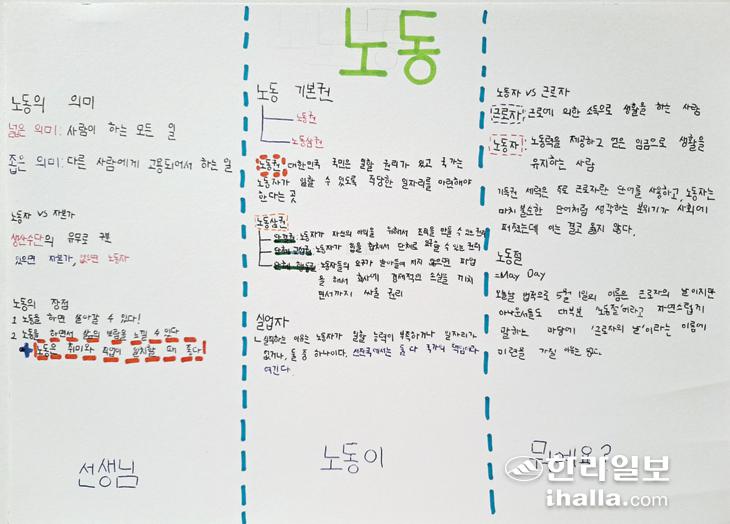 노동
노동의 의미
넓은 의미: 사람이 하는 모든 일
좁은 의미: 다른 사람에게 고용되어서 하는 일
노동자 VS 자본가
생산수단의 유무로 구분
있으면 자본가, 없으면 노동자
노동의 장점
1 노동을 하면 살아갈 수 있다!
2 노동을 하면서 삶의 보람을 느낄 수 있다
+ 노동은 취미와 직업이 일치할 때 좋다!
선생님
노동 기본권
노동권
노동삼권
노동권: 대한민국 국민은 일할 권리가 있고 국가는
노동자가 일할 수 있도록 적당한 일자리를 마련해야
한다는 것
노동삼권
단결권: 노동자가 자신의 이익을 위해서 조직을 만들 수 있는 권리
단체 교섭권: 노동자가 힘을 합쳐서 단체로 요구할 수 있는 권리
단체 행동권: 노동자들의 요구가 받아들여 지지 않으면 파업
을 해서 회사에 경제적인 손실을 끼치
면서까지 싸울 권리
실업자
ㄴ실직하는 이유는 노동자가 일할 능력이 부족하거나 일자리가
없거나, 둘 중 하나이다. 선진국에서는 둘 다 국가의 책임이라
여긴다.
노동이
노동자 VS 근로자
근로자: 근로에 의한 소득으로 생활을 하는 사람
노동자: 노동력을 제공하고 얻은 임금으로 생활을
유지하는 사람
기득권 세력은 주로 근로자란 단어를 사용하고, 노동자는
마치 불순한 단어처럼 생각하는 분위기가 사회에
퍼졌는데 이는 결코 옳지 않다.
노동절
=May Day
오늘날 법적으로 5월 1일의 이름은 근로자의 날이지만
아나운서들도 대부분 '노동절'이라고 자연스럽게
말하는 마당에 '근로자의 날'이라는 이름에
미련을 가질 이유는 없다.
뭐예요?
한라일보
ihalla.com